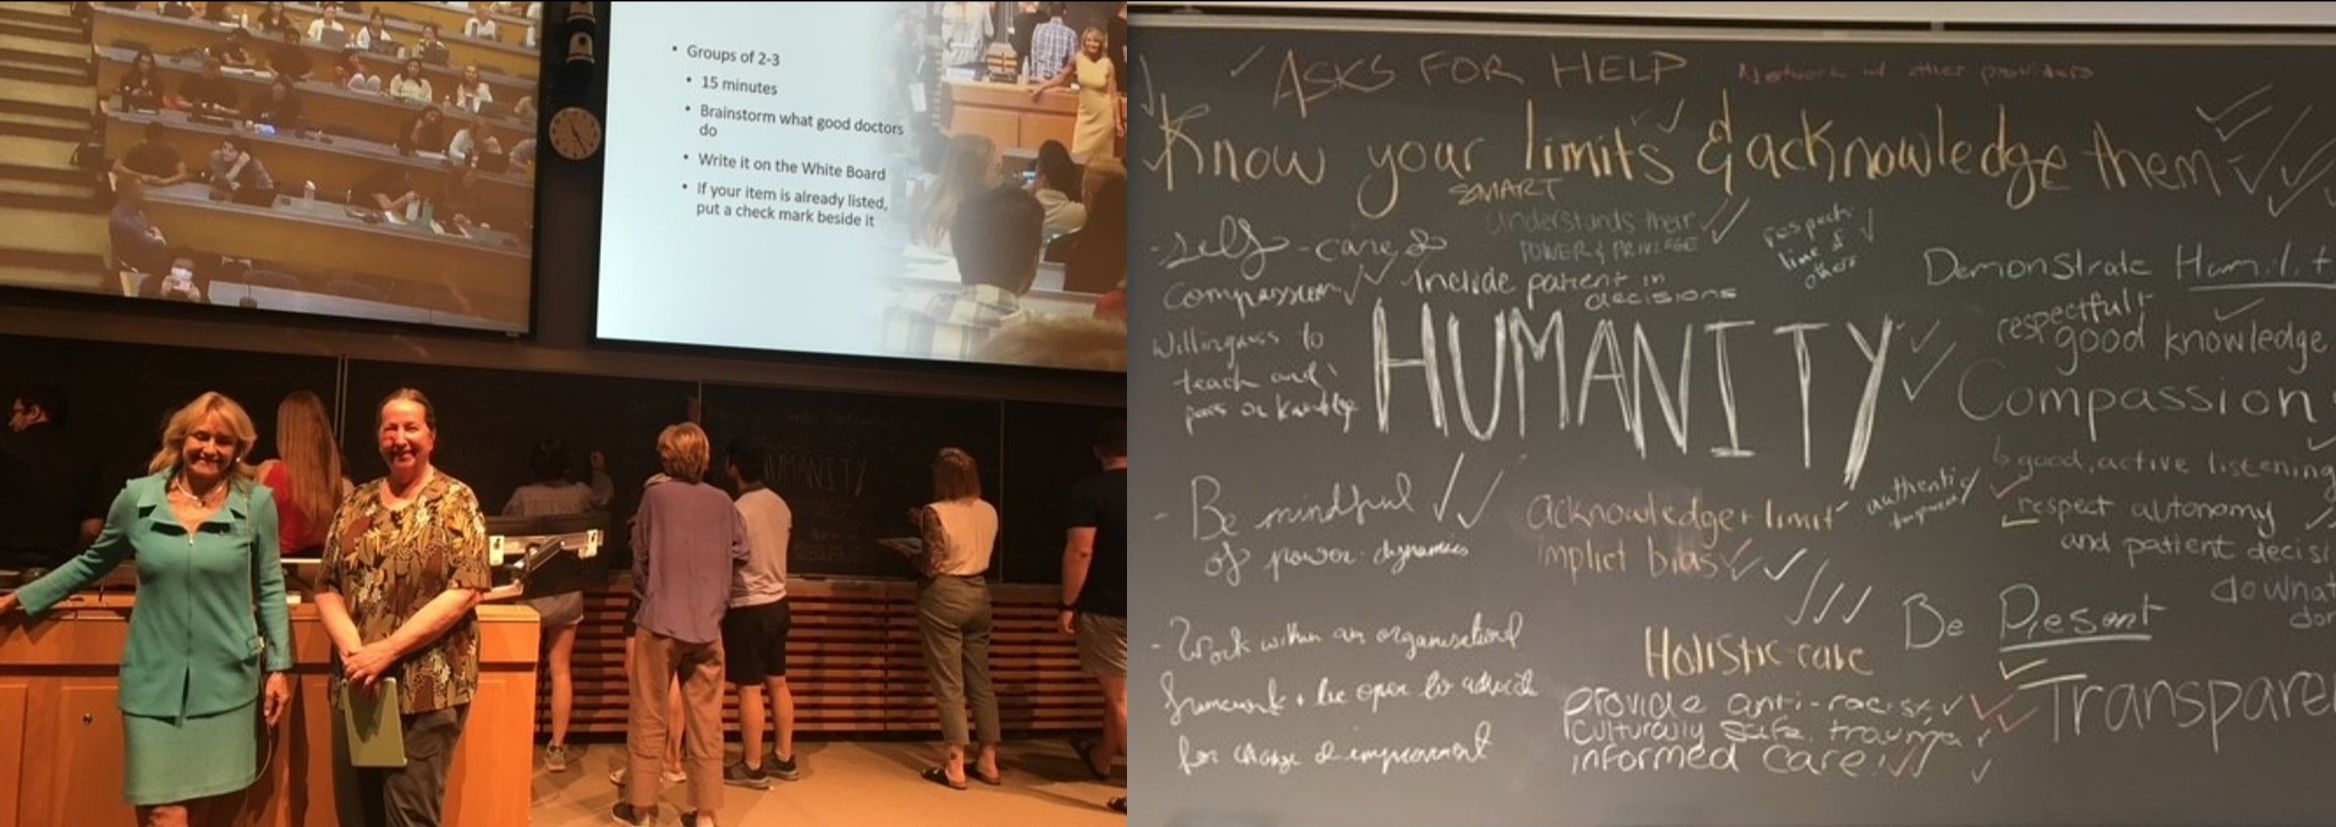 Groups of 2-3
15 minutes
Brainstorm what good doctors
do
Write it on the White Board
If your item is already listed,
put a check mark beside it
HUMANITY
ASKS FOR HELP
Network w/ other providers
Know your limits & acknowledge them
SMART
-self-care &
compassion
Understands their
POWER & PRIVILEGE
respects
time of
others
Include patient in
decisions
Willingness to
teach and
pass on
HUMANITY
Demonstrate Humilit
respectful
good knowledge
Compassion
good, active listening
respect autonomy
and patient decisi
- Be mindful
of power dynamics
acknowledge + limit
implict bias
authentic
Be Present
do what
- Work within an organisational
framework + be open to advocate
for change & improvement
Holistic care
Provide anti-racist,
culturally safe, trauma
informed care!
Transpare